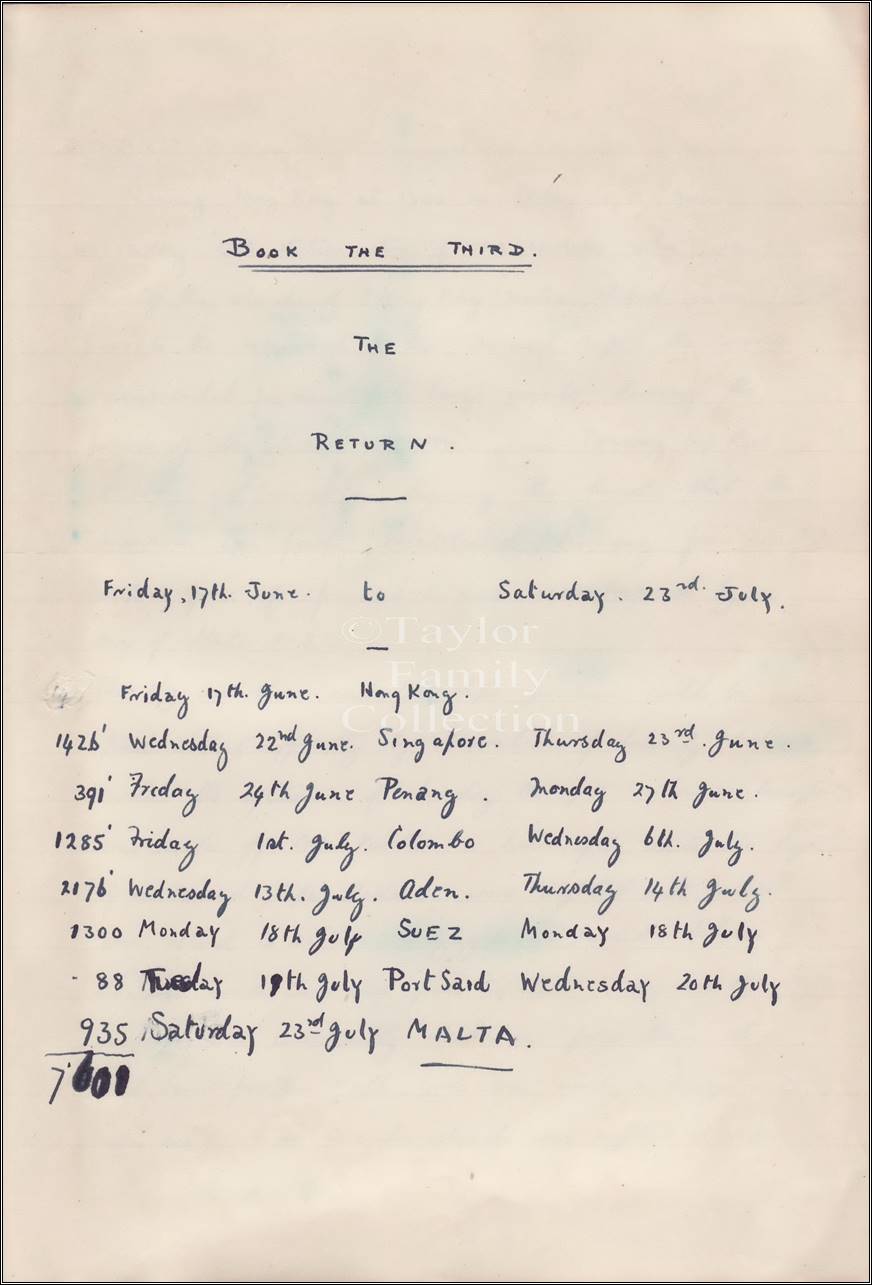 BOOK THE THIRD.
THE
RETURN.
Friday, 17th. June. to Saturday. 23rd. July.
©Taylor
Family
Collection
Friday 17th. June. Hong Kong.
1426' Wednesday 22nd June. Singapore. Thursday 23rd. June.
391' Friday 24th June Penang. Monday 27th June.
1285' Friday 1st. July. Colombo Wednesday 6th. July.
2176' Wednesday 13th. July. Aden. Thursday 14th July.
1300 Monday 18th July SUEZ Monday 18th July
88 Tuesday 19th July Port Said Wednesday 20th July
935 Saturday 23rd July MALTA.
7601